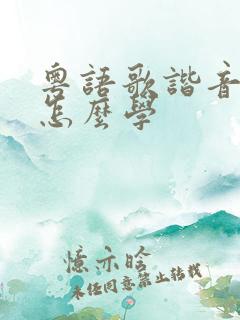 粵語歌諧音
怎麼學
憶亦晗
未經同意禁止轉載